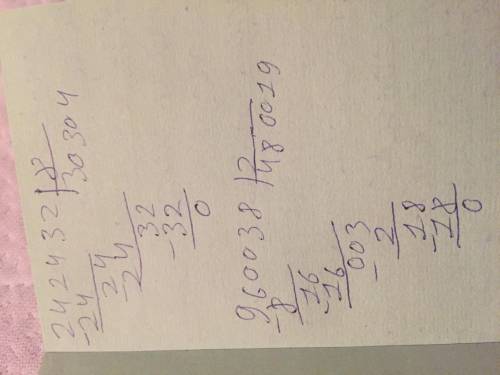 242432 | 8
-24 30304
24
-24
32
-32
0
960038 | 2
-8 480019
16
-16
003
- 2
18
-18
0